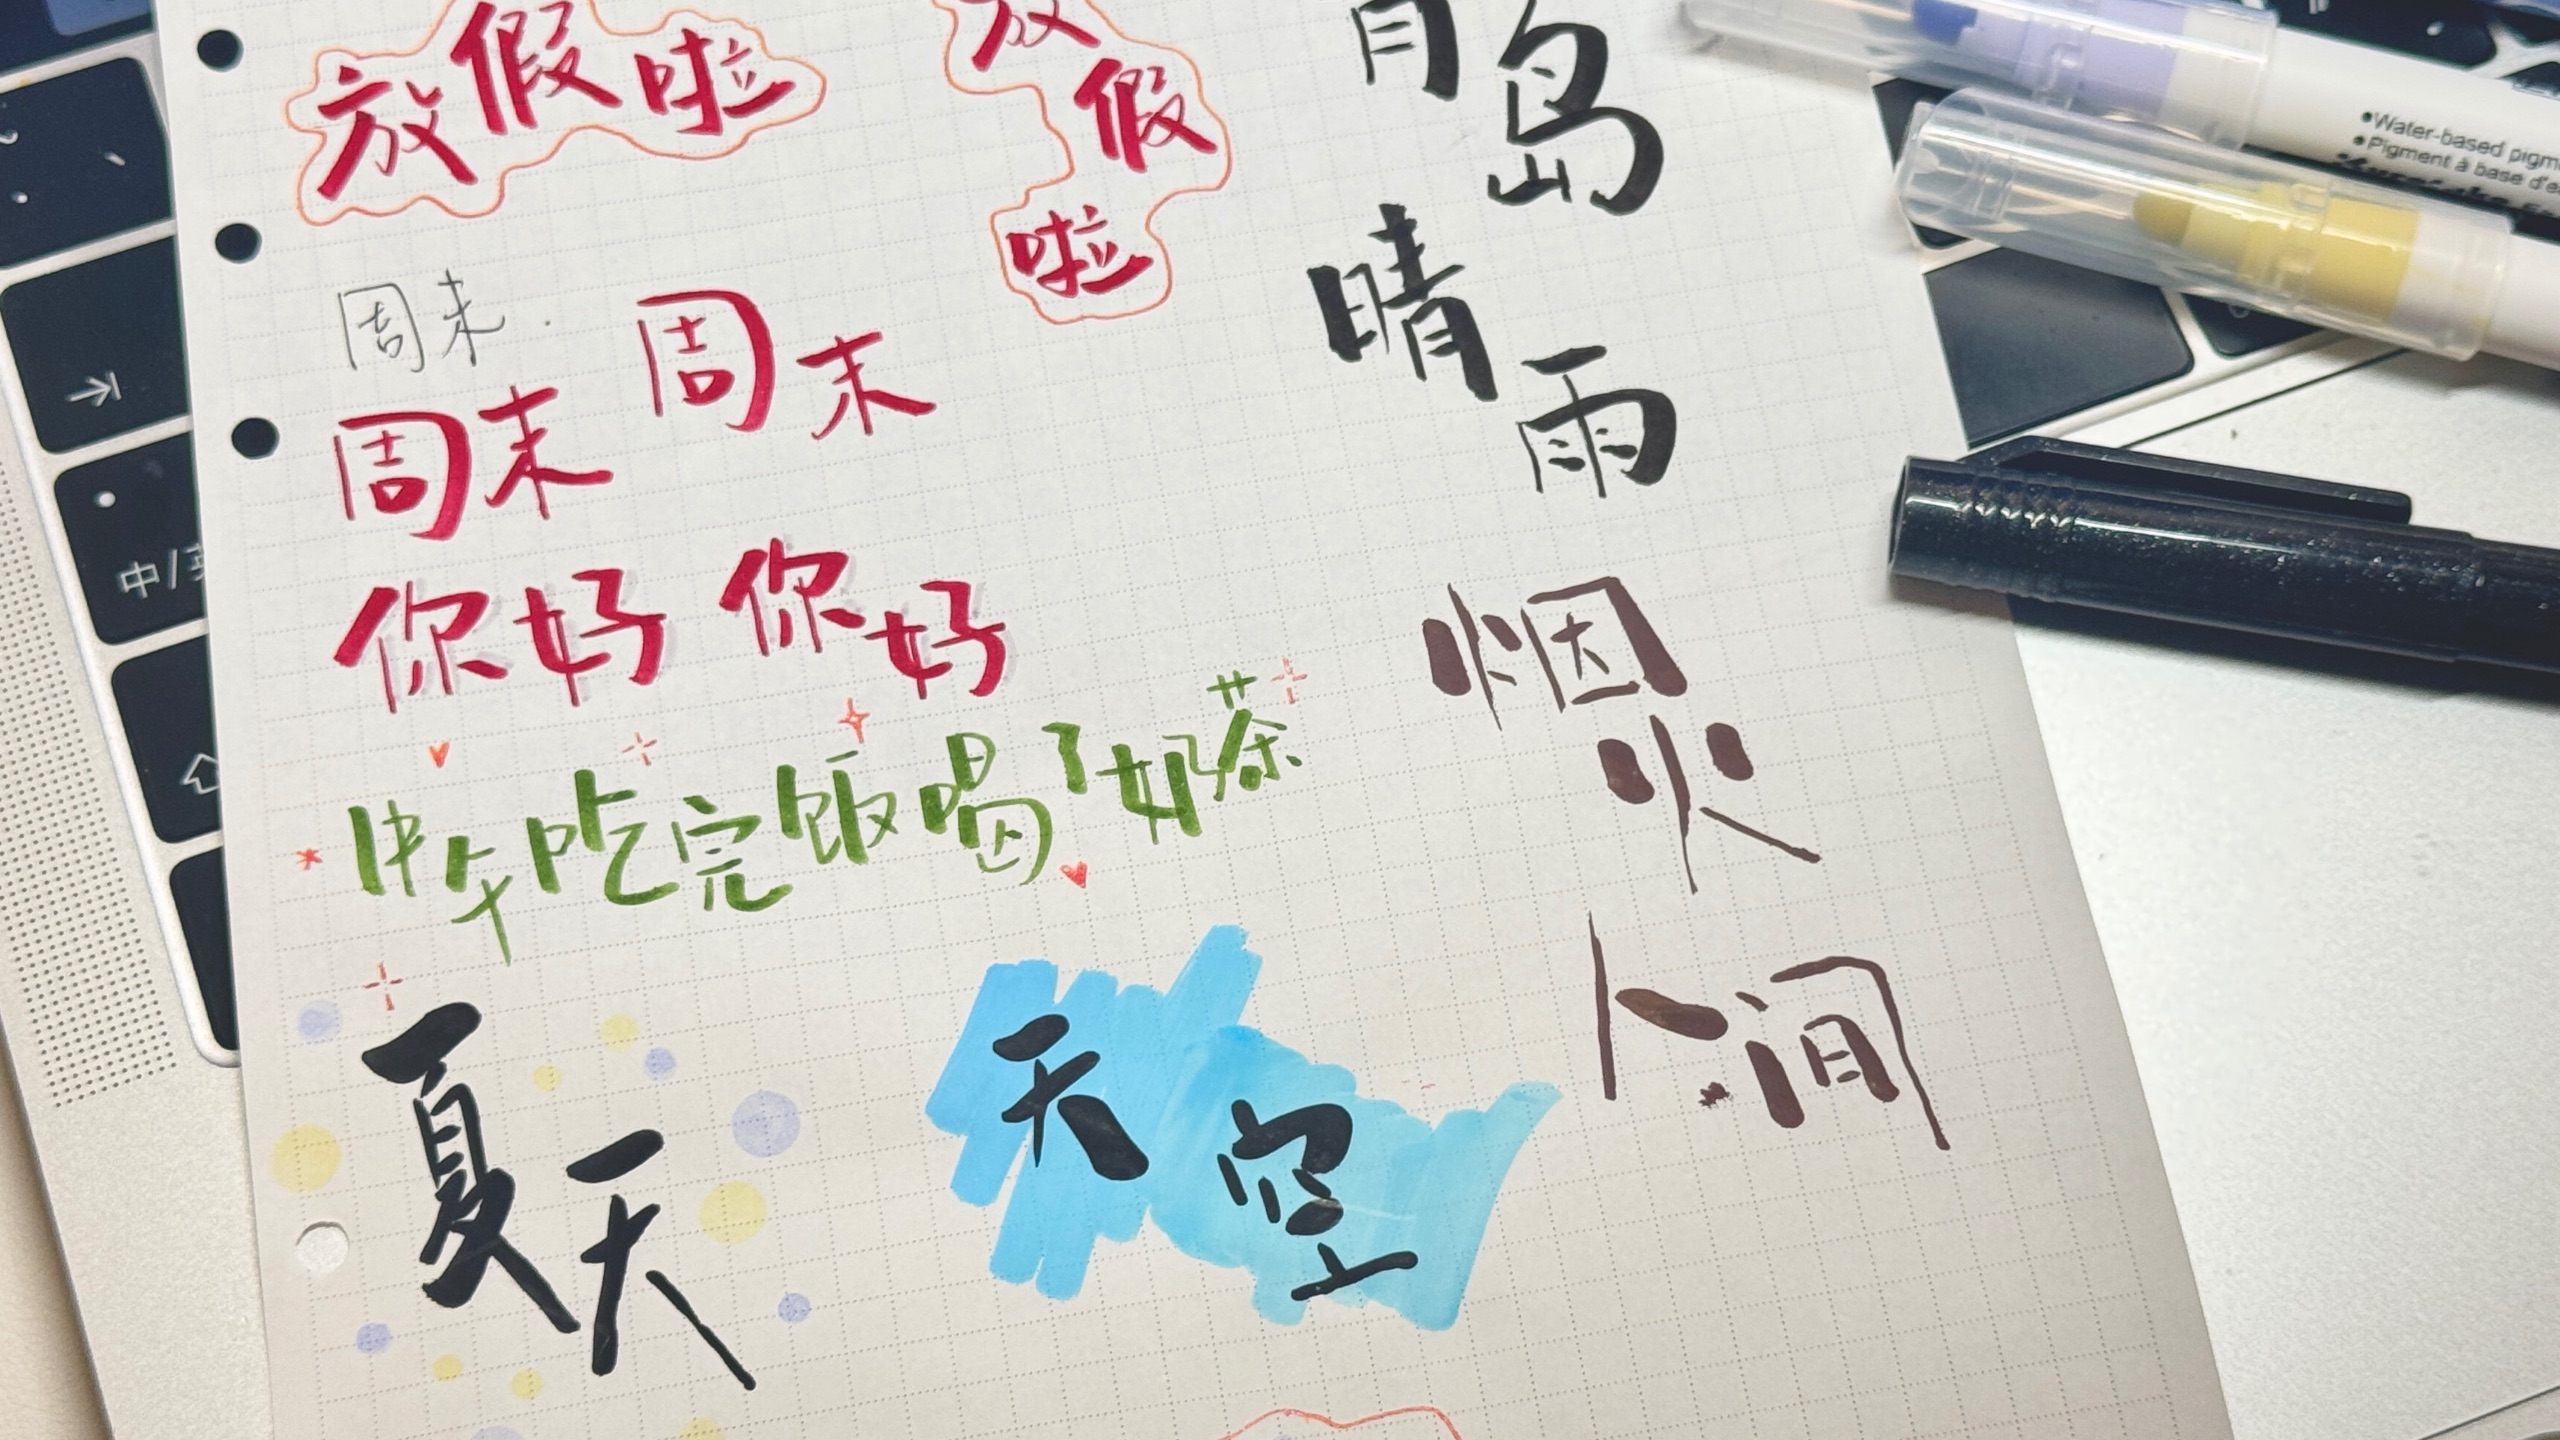 放假啦
放假啦
岛
晴
雨
周末
周末
周末
你好
你好
中午吃完饭喝了奶茶
烟火
人间
夏天
天空
中/英
Water-based
Pigment à base